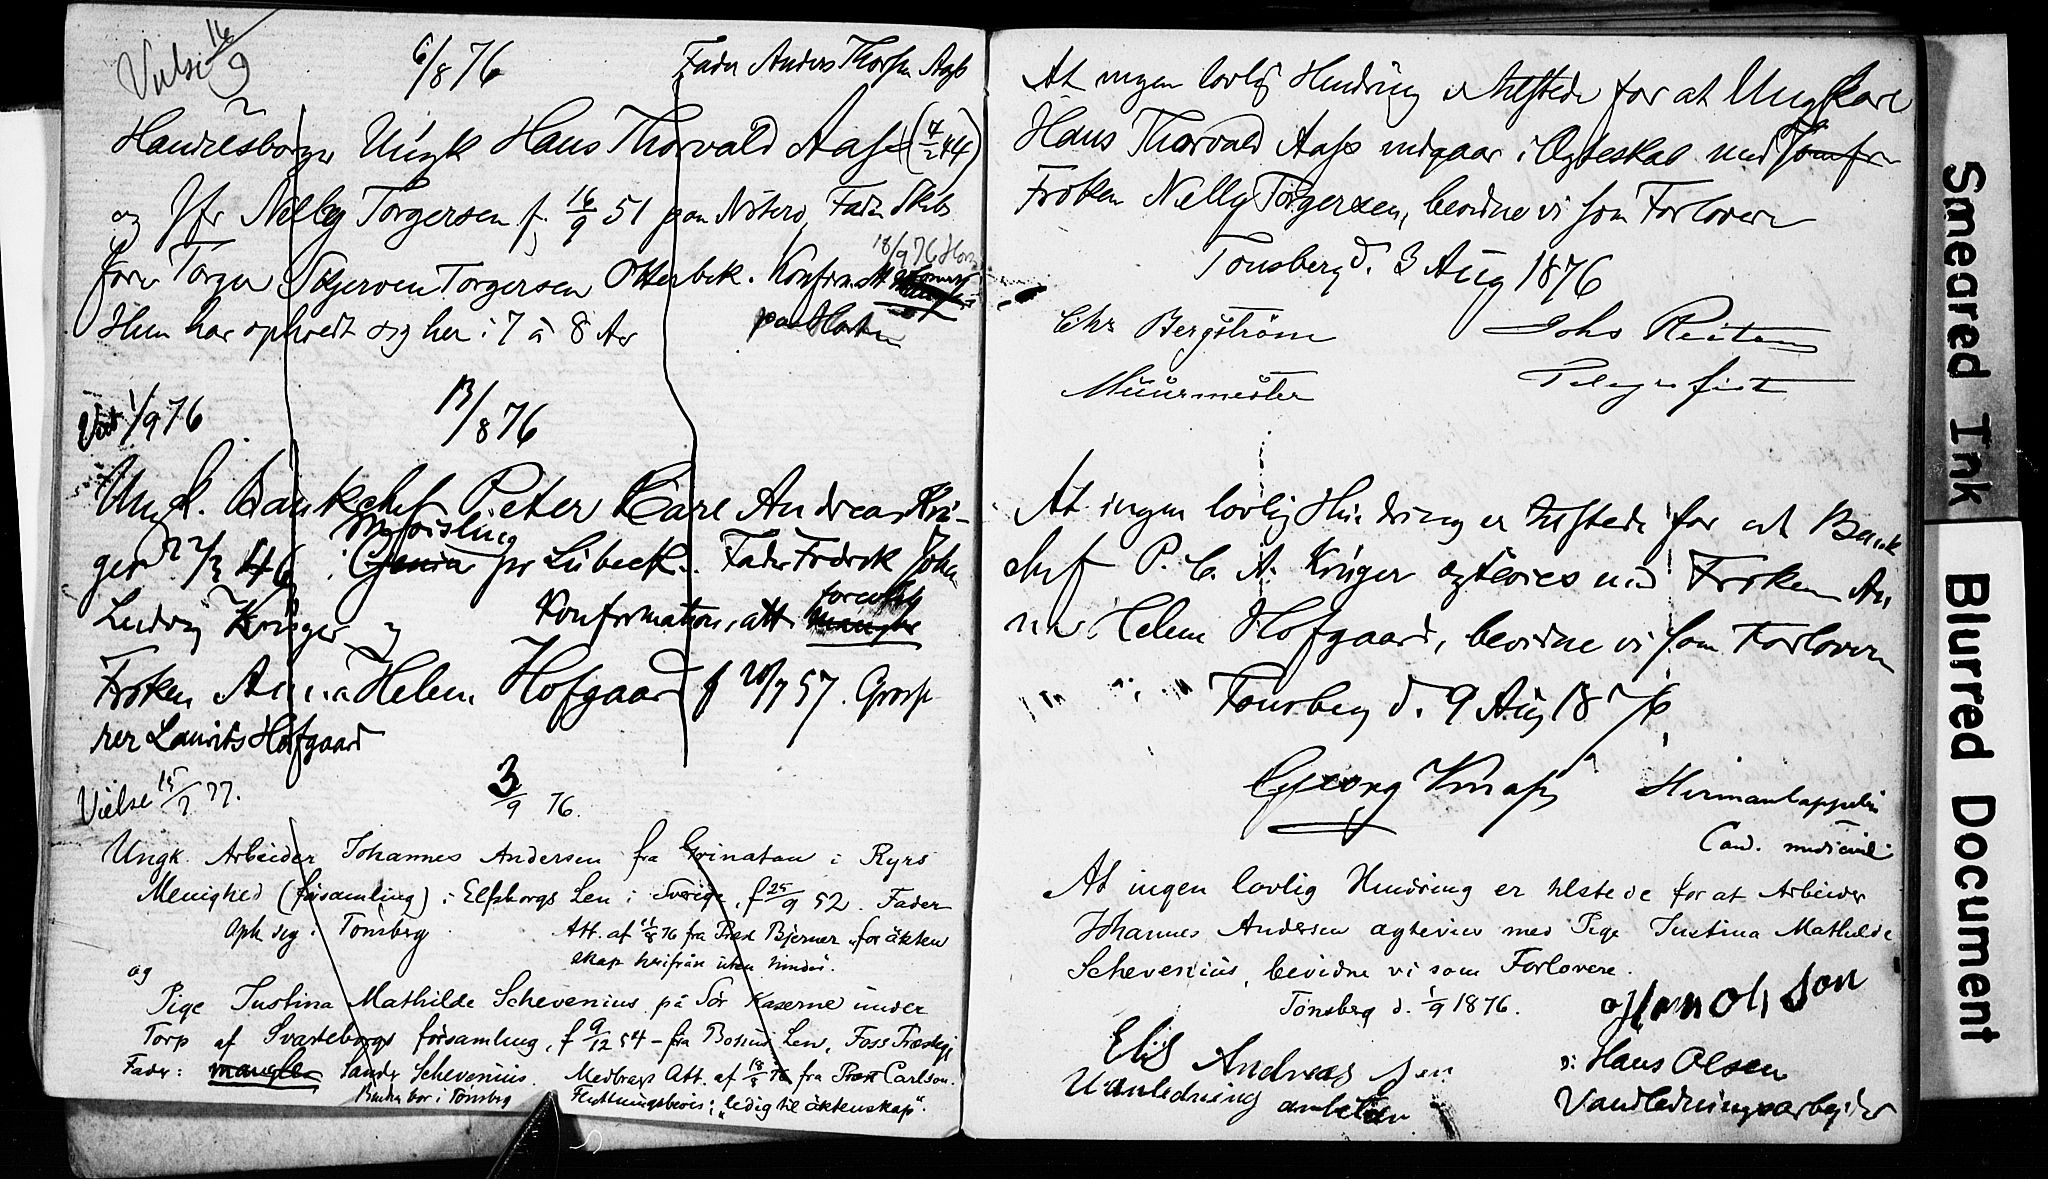 Vielse 16/9
6/8 76
Fader Anders Aass
Handelsborger Ungk Hans Thorvald Aass (4/2 44)
og Jfr Nelly Torgersen f. 16/9 51 paa Nøterø, Fader Skibs
fører Torger Torgersen Otterbek. Konfirm. att
18/9 76
Hun har opholdt sig her i 7 à 8 Ar
paa Horten
Viet 1/9 76
13/8 76
Ungk. Bankchef Peter Carl Andreas Krü-
ger 46 i pr Lübeck. Fader Fredrik Joha
Ludvig Krüger og
Konfirmations att mangler
Frøken Anna Helene Hofgaard f 57. Gross
rer Laurits Hofgaard
Vielse 15/7 77.
3/9 76.
Ungk. Arbeider Johannes Andersen fra Grinatan i Ryrs
Menighed (församling) i Elfsborgs Len i Sverige, f 25/9 52. Fader
Oph sig i Tönsberg
Att. af 11/8 76 fra Præst Bjerner "for äkten
skap herifrån utan hinder.
og
Pige Justina Mathilde Schevenius på Sör Kaserne under
Torp af Svarteborgs församling, f 9/12 54 - fra Bohus Len, Foss Prestegj
Fader: mangler Sander Schevenius. Medbragt Att. af 18/8 76 fra Præst Carlson.
bor i Tönsberg
Flyttningsbevis: "ledig til äktenskap".
At ingen lovlig Hindring er tilstede for at Ungkarl
Hans Thorvald Aass indgaar i Ægteskab med Jomfru
Frøken Nelly Torgersen, bevidne vi som Forlovere
Tonsberg d. 3 Aug 1876
Chr Bergström
Muurmester
Johs
Telegrafist
At ingen lovlig Hindring er tilstede for at Bank
chef P. C. A. Krüger ægtevies med Frøken An
na Helene Hofgaard, bevidne vi som Forlovere
Tonsberg d. 9 Aug 1876
Georg Knap
Cand. medicinæ
At ingen lovlig Hindring er tilstede for at Arbeider
Johannes Andersen ægtevies med Pige Justina Mathilde
Schevenius, bevidne vi som Forlovere.
Tönsberg d. 1/9 1876.
Elis Andreas sen
Hans Olsen
Vandledningsarbejder
Smeared Ink
Blurred Document